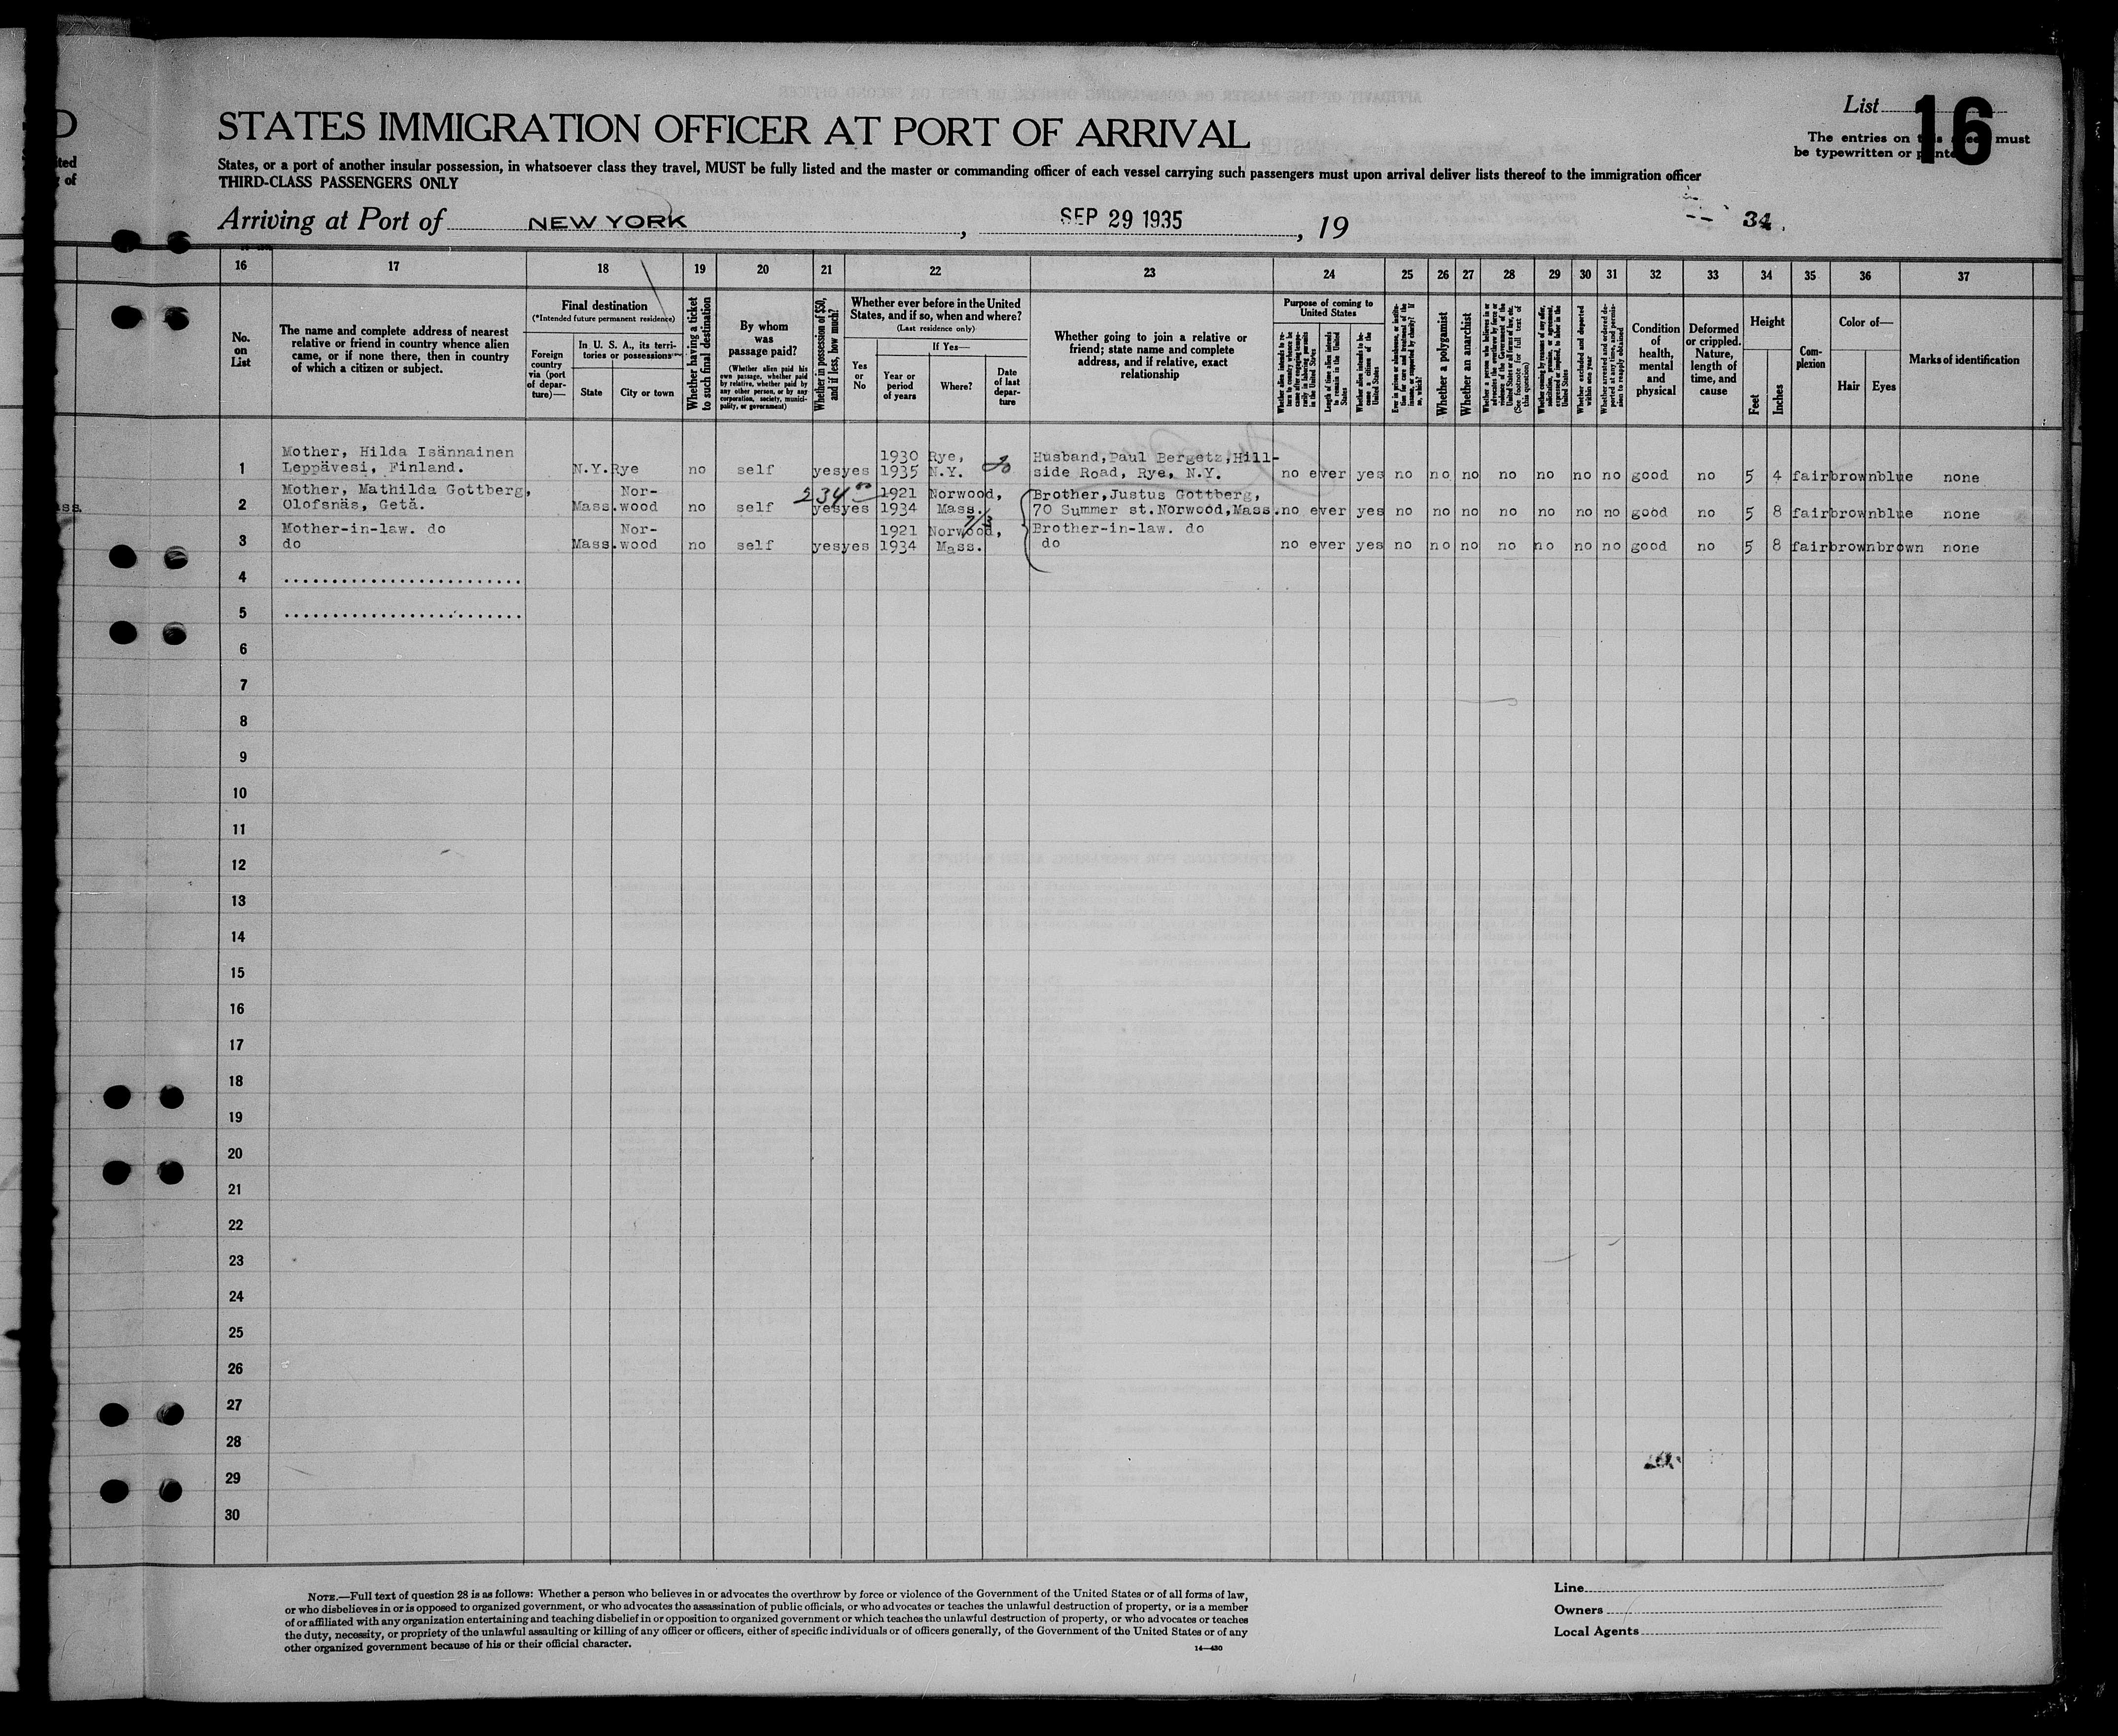 List
16
The entries on must
be typewritten or
STATES IMMIGRATION OFFICER AT PORT OF ARRIVAL
States, or a port of another insular possession, in whatsoever class they travel, MUST be fully listed and the master or commanding officer of each vessel carrying such passengers must upon arrival deliver lists thereof to the immigration officer
THIRD-CLASS PASSENGERS ONLY
Arriving at Port of NEW YORK , SEP 29 1935 , 19
34
16 17 18 19 20 21 22 23 24 25 26 27 28 29 30 31 32 33 34 35 36 37
No. on List
The name and complete address of nearest
relative or friend in country whence alien
came, or if none there, then in country
of which a citizen or subject.
Final destination
(*Intended future permanent residence)
Foreign
country
via (port
of depar-
ture)—
In U. S. A., its terri-
tories or possessions
State City or town
Whether having a ticket
to such final destination
By whom
was
passage paid?
(Whether alien paid his
own passage, whether paid
by relative, whether paid by
any other person, or by any
corporation, society, munici-
pality, or government)
Whether in possession of $50,
and if less, how much?
Whether ever before in the United
States, and if so, when and where?
(Last residence only)
Yes
or
No
If Yes—
Year or
period
of years
Where?
Date
of last
depar-
ture
Whether going to join a relative or
friend; state name and complete
address, and if relative, exact
relationship
Purpose of coming to
United States
Length of time alien intends
to remain in the United
States
Whether alien intends to be-
come a citizen of the
United States
Whether a polygamist
Whether an anarchist
Whether excluded and deported
within one year
Condition
of
health,
mental
and
physical
Deformed
or crippled.
Nature,
length of
time, and
cause
Height
Feet Inches
Com-
plexion
Color of—
Hair Eyes
Marks of identification
Mother, Hilda Isännainen 1930 Rye, Husband, Paul Bergetz, Hill-
1 Leppävesi, Finland. N.Y. Rye no self yes yes 1935 N.Y. side Road, Rye, N.Y. no ever yes no no no no no no no good no 5 4 fair brown blue none
Mother, Mathilda Gottberg, Nor- 234 00 1921 Norwood, Brother, Justus Gottberg,
2 Olofsnäs, Getä. Mass. wood no self yes yes 1934 Mass. 70 Summer st. Norwood, Mass. no ever yes no no no no no no no good no 5 8 fair brown blue none
Mother-in-law. do Nor- 1921 Norwood, Brother-in-law. do
3 do Mass. wood no self yes yes 1934 Mass. do no ever yes no no no no no no no good no 5 8 fair brown brown none
4
5
6
7
8
9
10
11
12
13
14
15
16
17
18
19
20
21
22
23
24
25
26
27
28
29
30
NOTE.—Full text of question 28 is as follows: Whether a person who believes in or advocates the overthrow by force or violence of the Government of the United States or of all forms of law,
or who disbelieves in or is opposed to organized government, or who advocates the assassination of public officials, or who advocates or teaches the unlawful destruction of property, or is a member
of or affiliated with any organization entertaining and teaching disbelief in or opposition to organized government or which teaches the unlawful destruction of property, or who advocates or teaches
the duty, necessity, or propriety of the unlawful assaulting or killing of any officer or officers, either of specific individuals or of officers generally, of the Government of the United States or of any
other organized government because of his or their official character.
14—430
Line
Owners
Local Agents